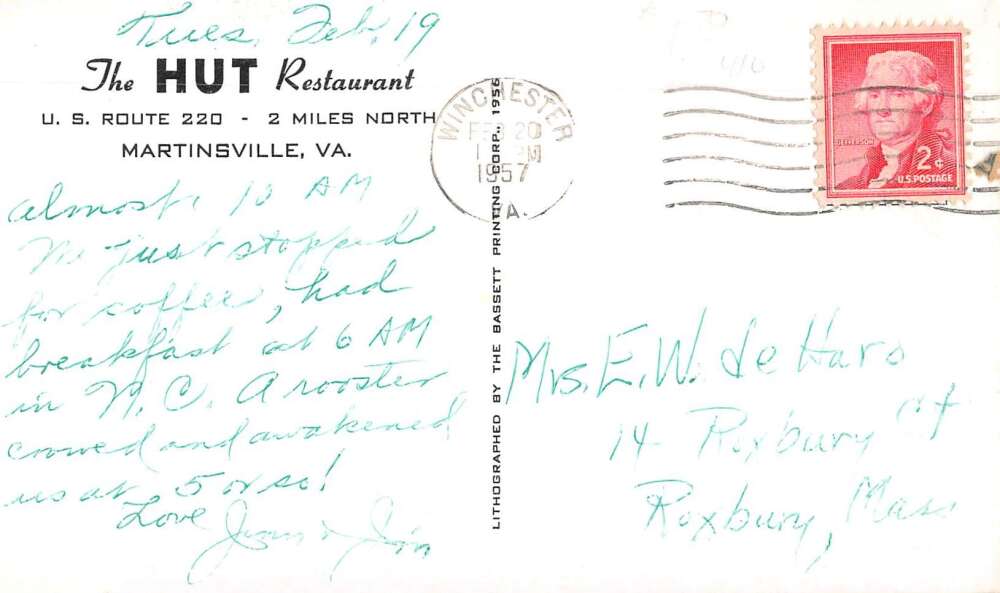 Tues, Feb, 19
The HUT Restaurant
U. S. ROUTE 220 - 2 MILES NORTH
MARTINSVILLE, VA.
almost 10 AM
We just stopped
for coffee, had
breakfast at 6 AM
in N. C. A rooster
crowed and awakened
us at 5 or so!
Love
LITHOGRAPHED BY THE BASSETT PRINTING CORP., 1956
WINCHESTER
FEB 20
PM
1957
VA.
JEFFERSON
2¢
U.S. POSTAGE
Mrs. E. W. de Haro
14 Roxbury
Roxbury, Mass